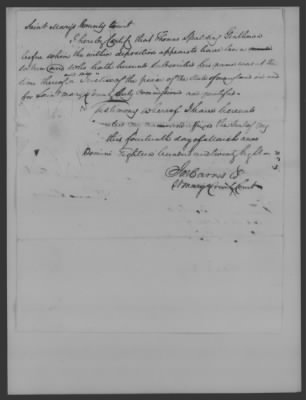 Saint Marys County Court
I hereby Certify that Thomas Spalding Gentleman
before whom the within deposition appears to have been
taken and who hath hereunto subscribed his name was at the
time thereof a Justice of the peace of the State of Maryland in and
for Saint marys County duly Commissioned and qualified.
In testimony whereof I have hereunto
my name and the Seal of my
this fourteenth day of March anno
Domini Eighteen hundred and twenty Eight
Jo Harris Clk
St Marys County Court